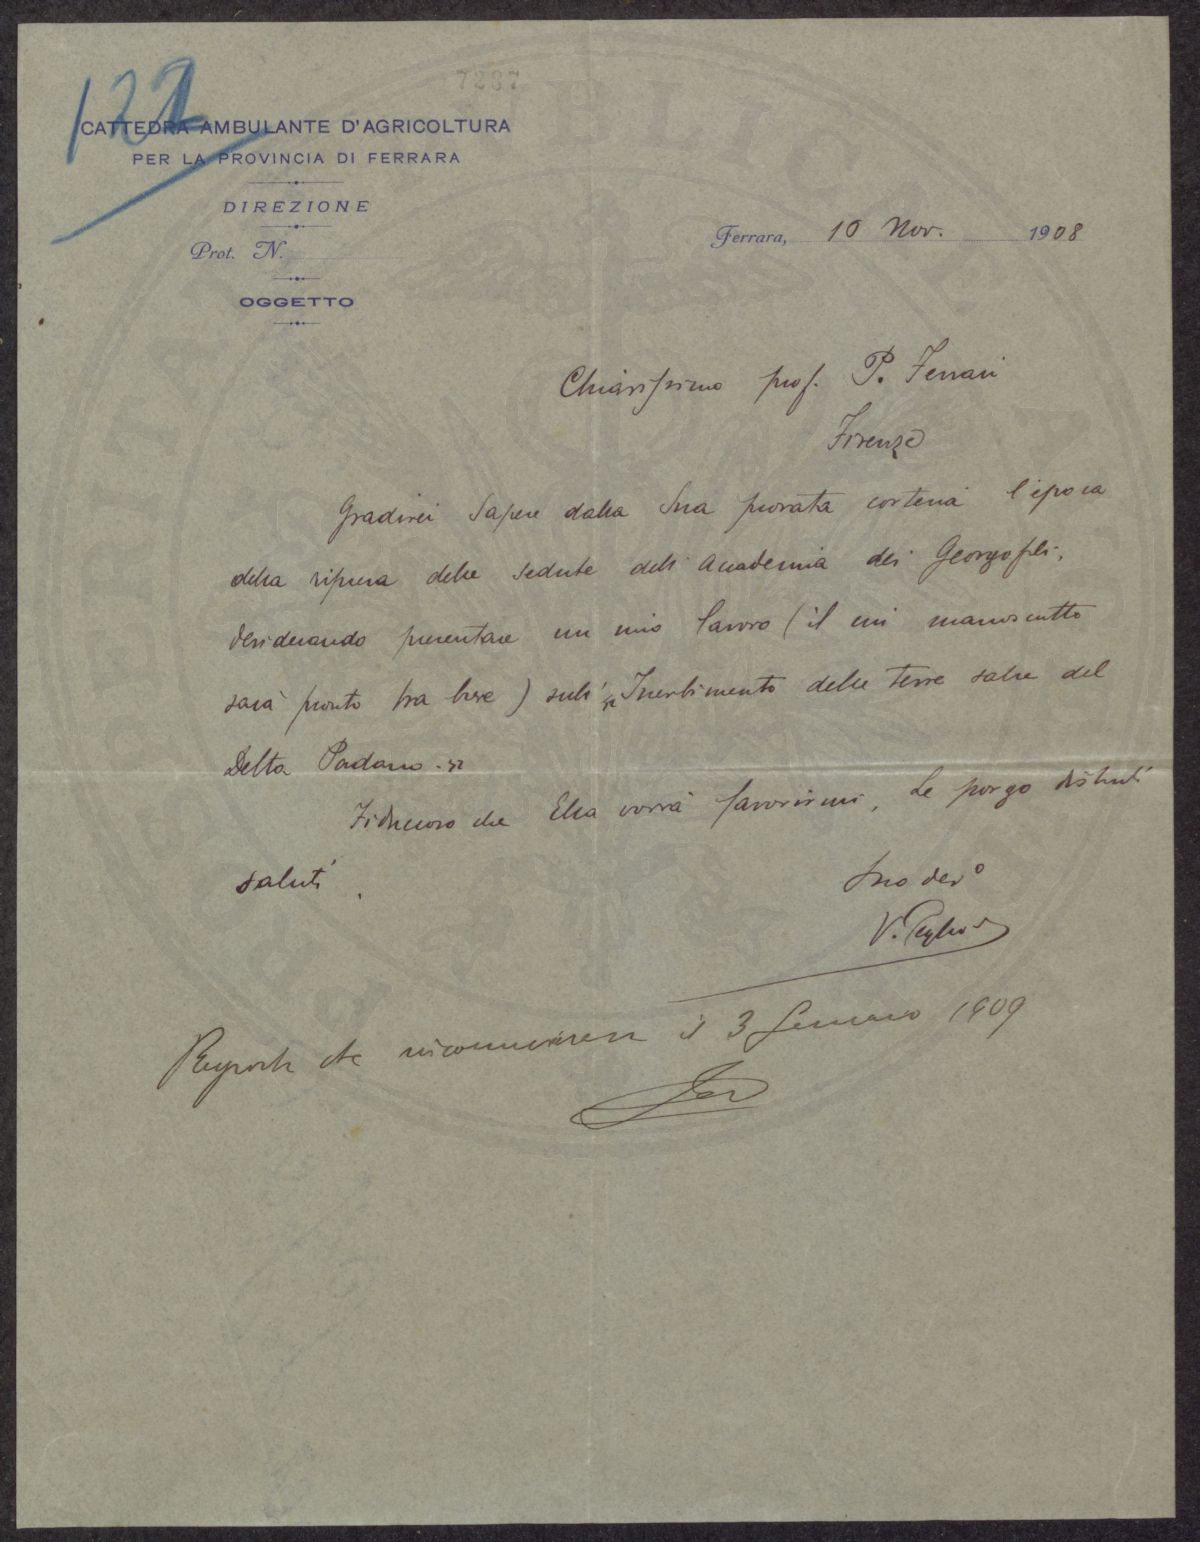 7287
122
CATTEDRA AMBULANTE D'AGRICOLTURA
PER LA PROVINCIA DI FERRARA
DIREZIONE
Prot. N.
OGGETTO
Ferrara, 10 Nov. 1908
Chiarissimo prof. P. Ferrari
Firenze
Gradirei sapere dalla Sua provata cortesia l'epoca
della ripresa delle sedute dell'Accademia dei Georgofili,
desiderando presentare un mio lavoro (il cui manoscritto
sarà pronto fra breve) sull' "Inerbimento delle terre salse del
Delta Padano."
Fiducioso che Ella vorrà favorirmi, Le porgo distinti
saluti.
Suo dev.º
V. Peglion
Risposto che ricominceranno il 3 Gennaio 1909